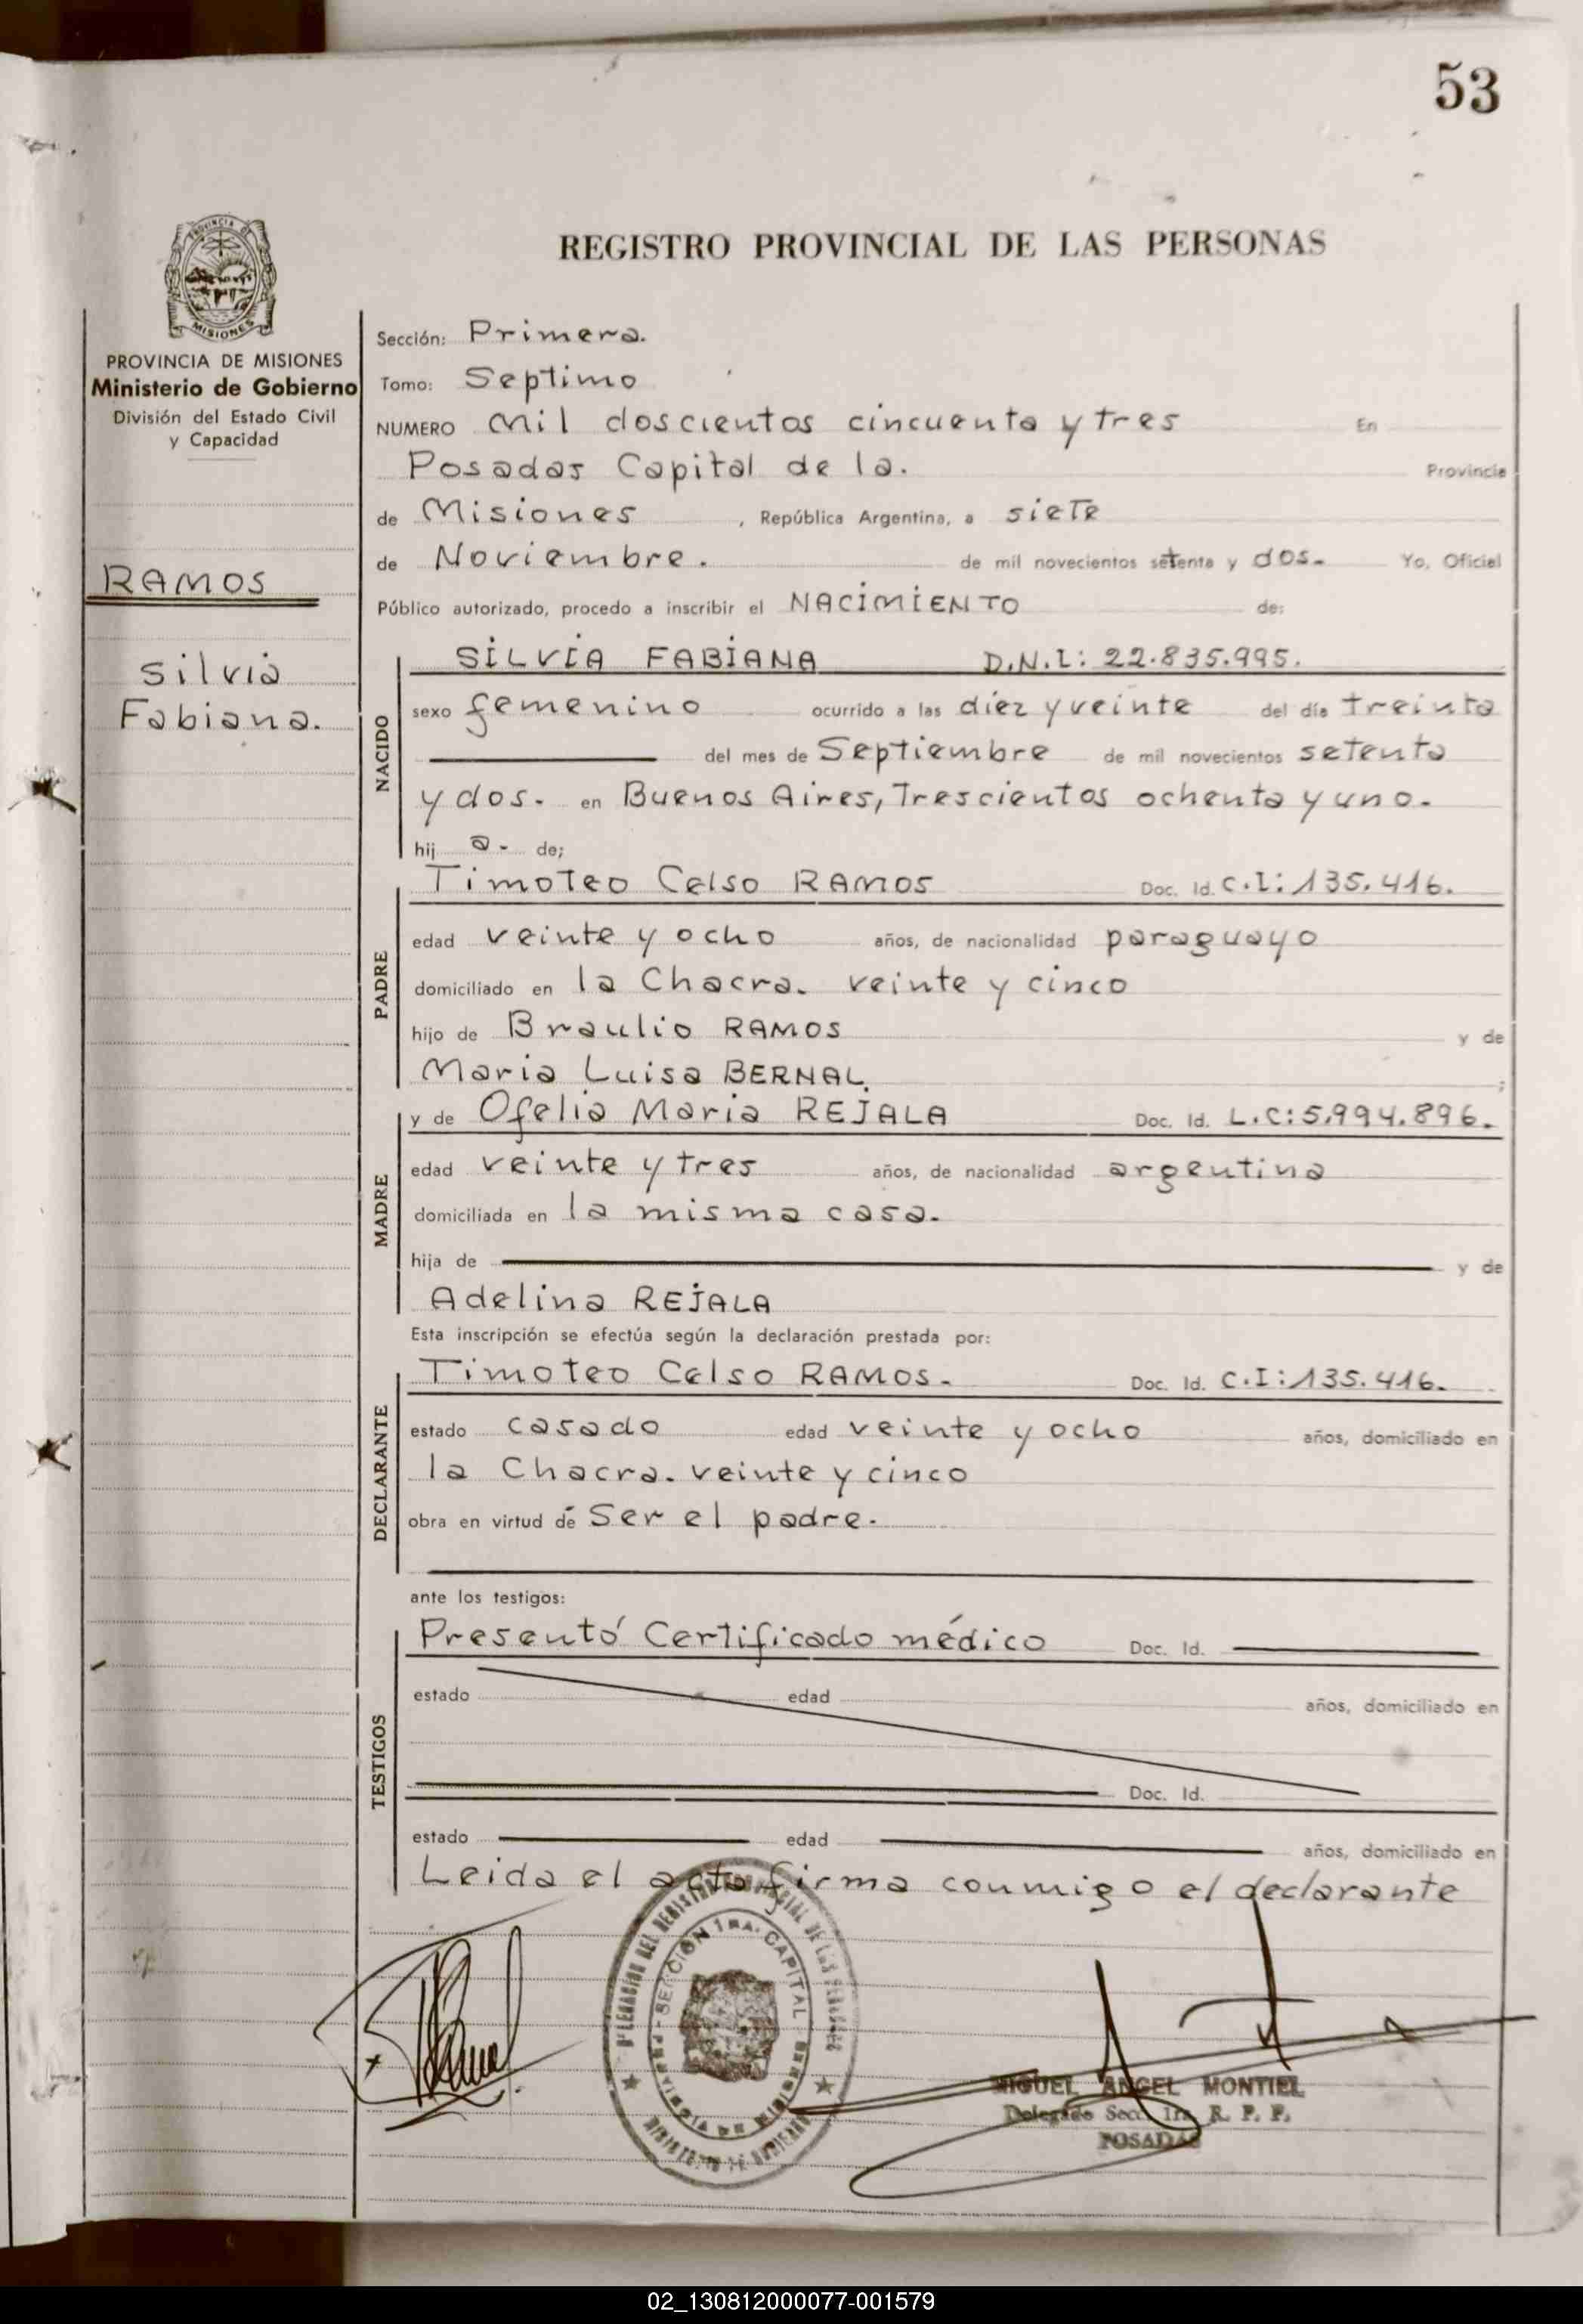 53
PROVINCIA DE
MISIONES
PROVINCIA DE MISIONES
Ministerio de Gobierno
División del Estado Civil
y Capacidad
RAMOS
Silvia
Fabiana.
REGISTRO PROVINCIAL DE LAS PERSONAS
Sección: Primera.
Tomo: Septimo
NUMERO Mil doscientos cincuenta y tres En
Posadas Capital de la. Provincia
de Misiones, República Argentina, a siete
de Noviembre. de mil novecientos setenta y dos.- Yo, Oficial
Público autorizado, procedo a inscribir el NACIMIENTO de:
NACIDO
SILVIA FABIANA D.N.I: 22.835.995.
sexo femenino ocurrido a las diez y veinte del día treinta
del mes de Septiembre de mil novecientos setenta
y dos.- en Buenos Aires, Trescientos ochenta y uno.-
hij a.- de;
PADRE
Timoteo Celso RAMOS Doc. Id. C.I: 135.416.
edad veinte y ocho años, de nacionalidad paraguayo
domiciliado en la Chacra. veinte y cinco
hijo de Braulio RAMOS y de
Maria Luisa BERNAL. ;
MADRE
y de Ofelia Maria REJALA Doc. Id. L.C: 5.994.896.-
edad veinte y tres años, de nacionalidad argentina
domiciliada en la misma casa.-
hija de y de
Adelina REJALA
Esta inscripción se efectúa según la declaración prestada por:
DECLARANTE
Timoteo Celso RAMOS.- Doc. Id. C.I: 135.416.-
estado casado edad veinte y ocho años, domiciliado en
la Chacra. veinte y cinco
obra en virtud de Ser el padre.-
ante los testigos:
TESTIGOS
Presentó Certificado médico Doc. Id.
estado edad años, domiciliado en
Doc. Id.
estado edad años, domiciliado en
Leida el acta firma conmigo el declarante
SECCION 1RA. CAPITAL
PROVINCIA DE MISIONES
MIGUEL ANGEL MONTIEL
Delegado Secc. 1ra. R. P. P.
POSADAS
02_130812000077-001579